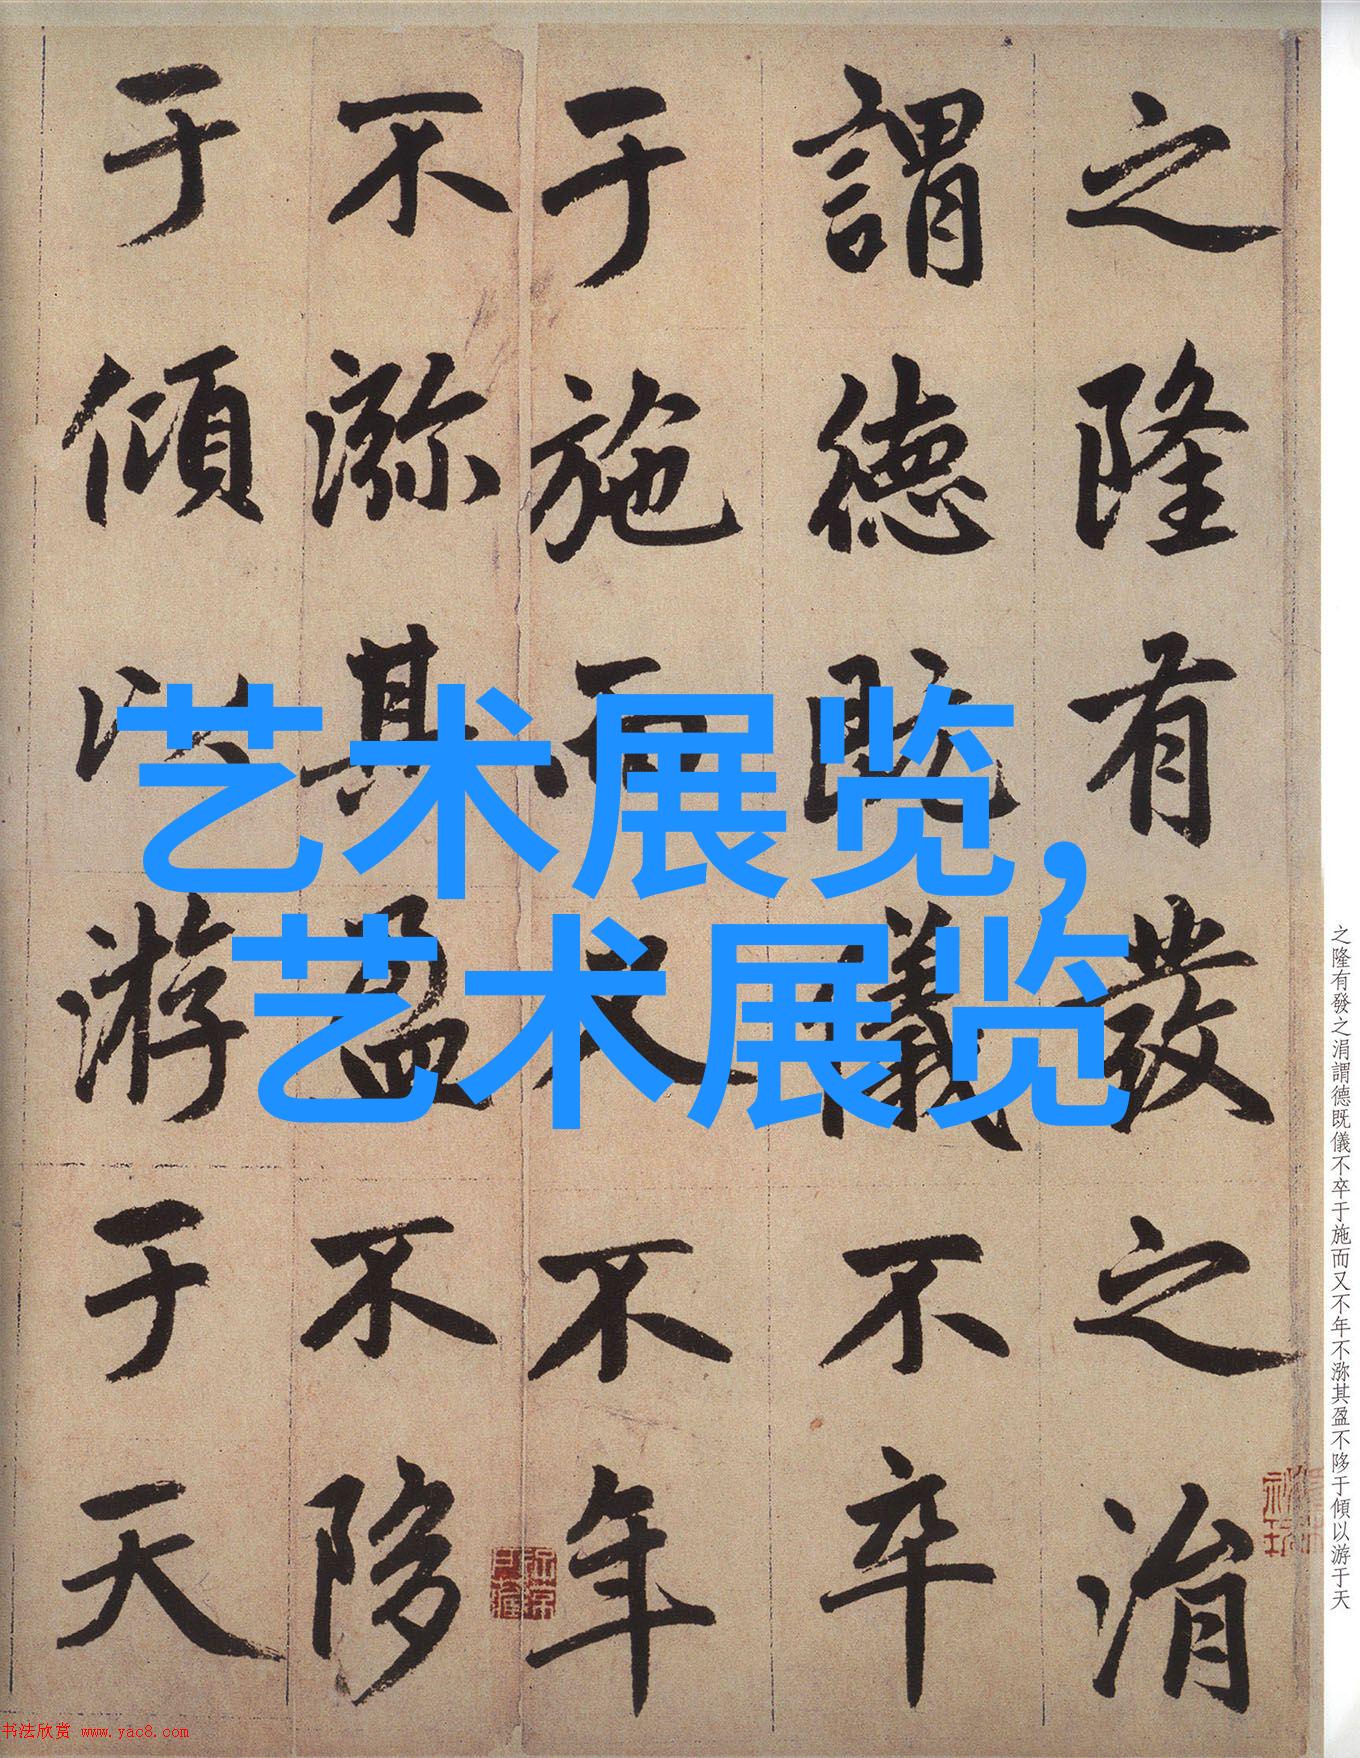 之隆有發之涓
謂德既儀不卒
于施而又不年
不㳽其盈不陊
于傾以游于天
艺术展览,
艺术展览
之隆有發之涓謂德既儀不卒于施而又不年不㳽其盈不陊于傾以游于天
书法欣赏 www.yac8.com